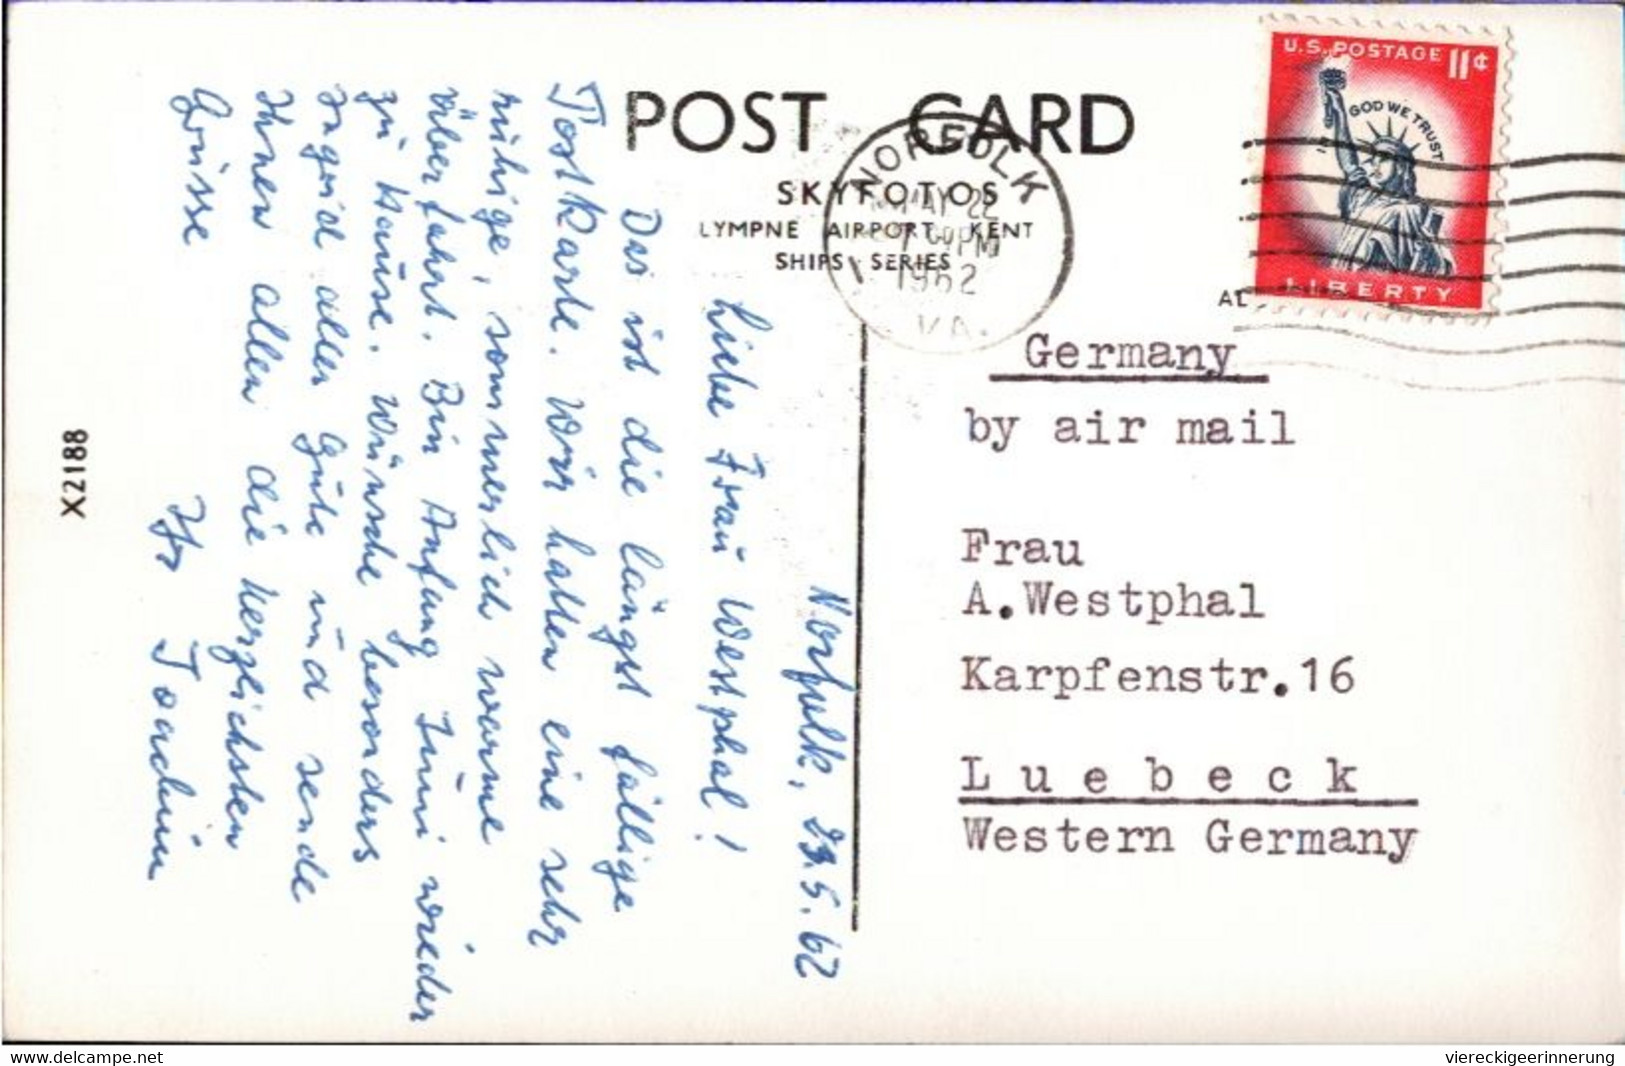 POST CARD
SKYFOTOS
LYMPNE AIRPORT, KENT
SHIPS SERIES
NORFOLK
MAY 22
PM
1962
VA.
U.S. POSTAGE 11¢
IN GOD WE TRUST
LIBERTY
Germany
by air mail
Frau
A.Westphal
Karpfenstr.16
Luebeck
Western Germany
Norfolk, 23.5.62
Liebe Frau Westphal!
Das ist die längst fällige
Postkarte. Wir hatten eine sehr
ruhige, sommerlich warme
Überfahrt. Bin Anfang Juni wieder
zu Hause. Wünsche besonders
Ingrid alles Gute und sende
Ihnen allen die herzlichsten
Grüsse
Ihr Joachim
X2188
www.delcampe.net
viereckigeerinnerung